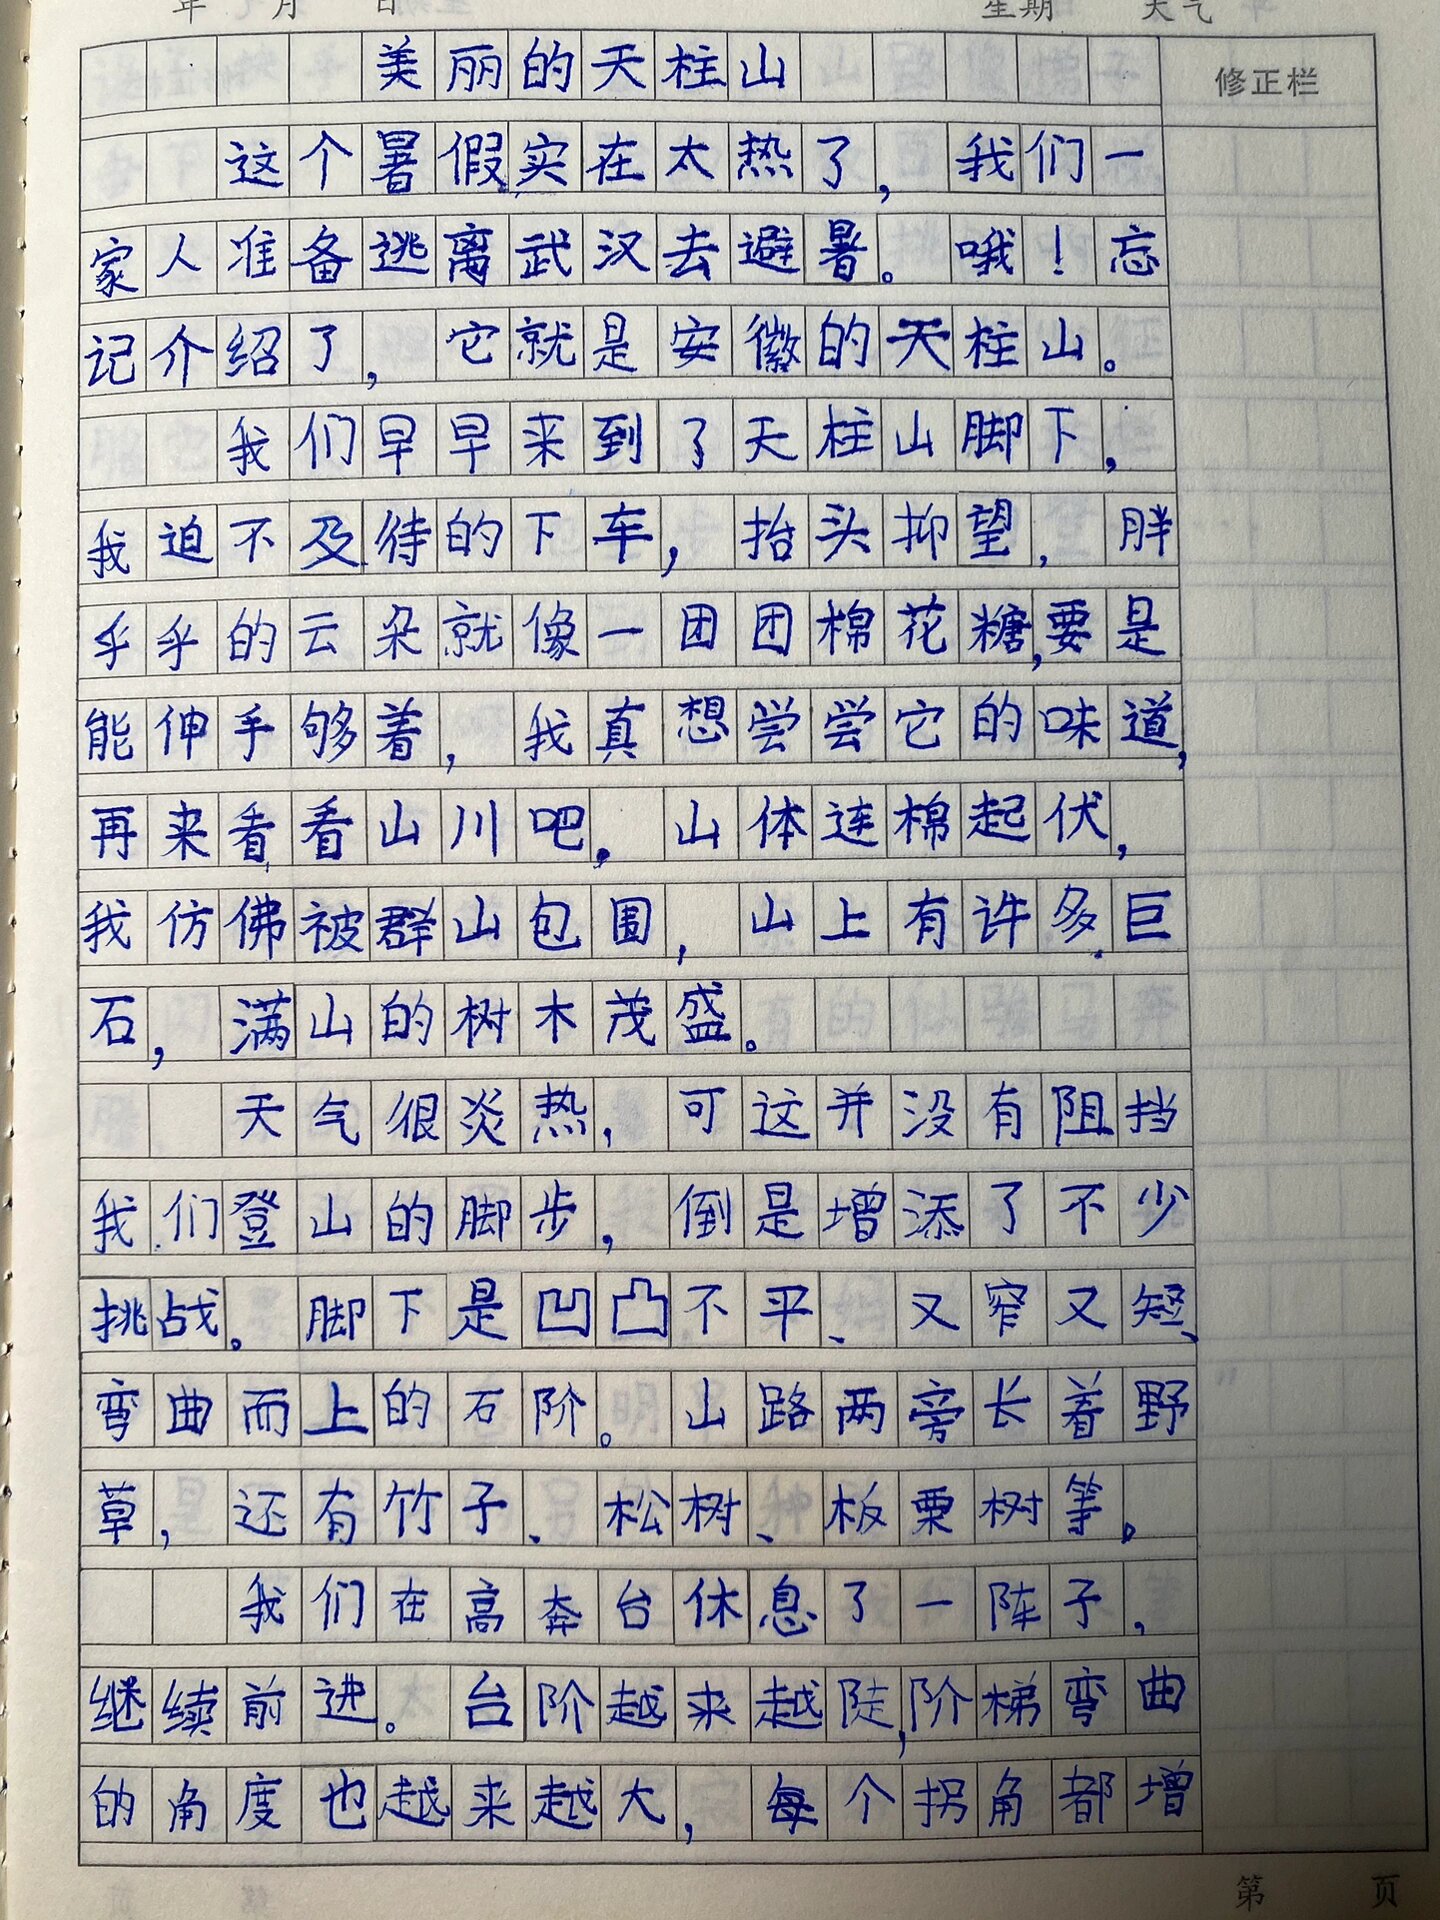 年 月 日 星期 天气
美丽的天柱山
修正栏
这个暑假实在太热了，我们一
家人准备逃离武汉去避暑。哦！忘
记介绍了，它就是安徽的天柱山。
我们早早来到了天柱山脚下，
我迫不及待的下车，抬头抑望，胖
乎乎的云朵就像一团团棉花糖，要是
能伸手够着，我真想尝尝它的味道，
再来看看山川吧。山体连棉起伏，
我仿佛被群山包围，山上有许多巨
石，满山的树木茂盛。
天气很炎热，可这并没有阻挡
我们登山的脚步，倒是增添了不少
挑战。脚下是凹凸不平、又窄又短、
弯曲而上的石阶。山路两旁长着野
草，还有竹子、松树、板栗树等。
我们在高奔台休息了一阵子，
继续前进。台阶越来越陡，阶梯弯曲
的角度也越来越大，每个拐角都增
第 页